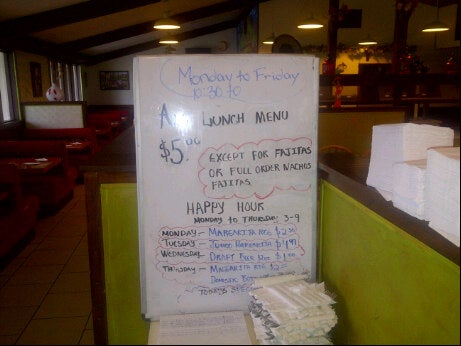 Monday to Friday
10:30 to
All LUNCH MENU
$5.00
EXCEPT FOR FAJITAS
OR FULL ORDER NACHOS
FAJITAS
HAPPY HOUR
MONDAY TO THURSDAY 3-9
MONDAY — MARGARITA REG
TUESDAY — JUMBO MARGARITA $4.99
WEDNESDAY — DRAFT BEER $1.00
THURSDAY — MARGARITA REG
DOMESTIC
TODAYS SPECIAL